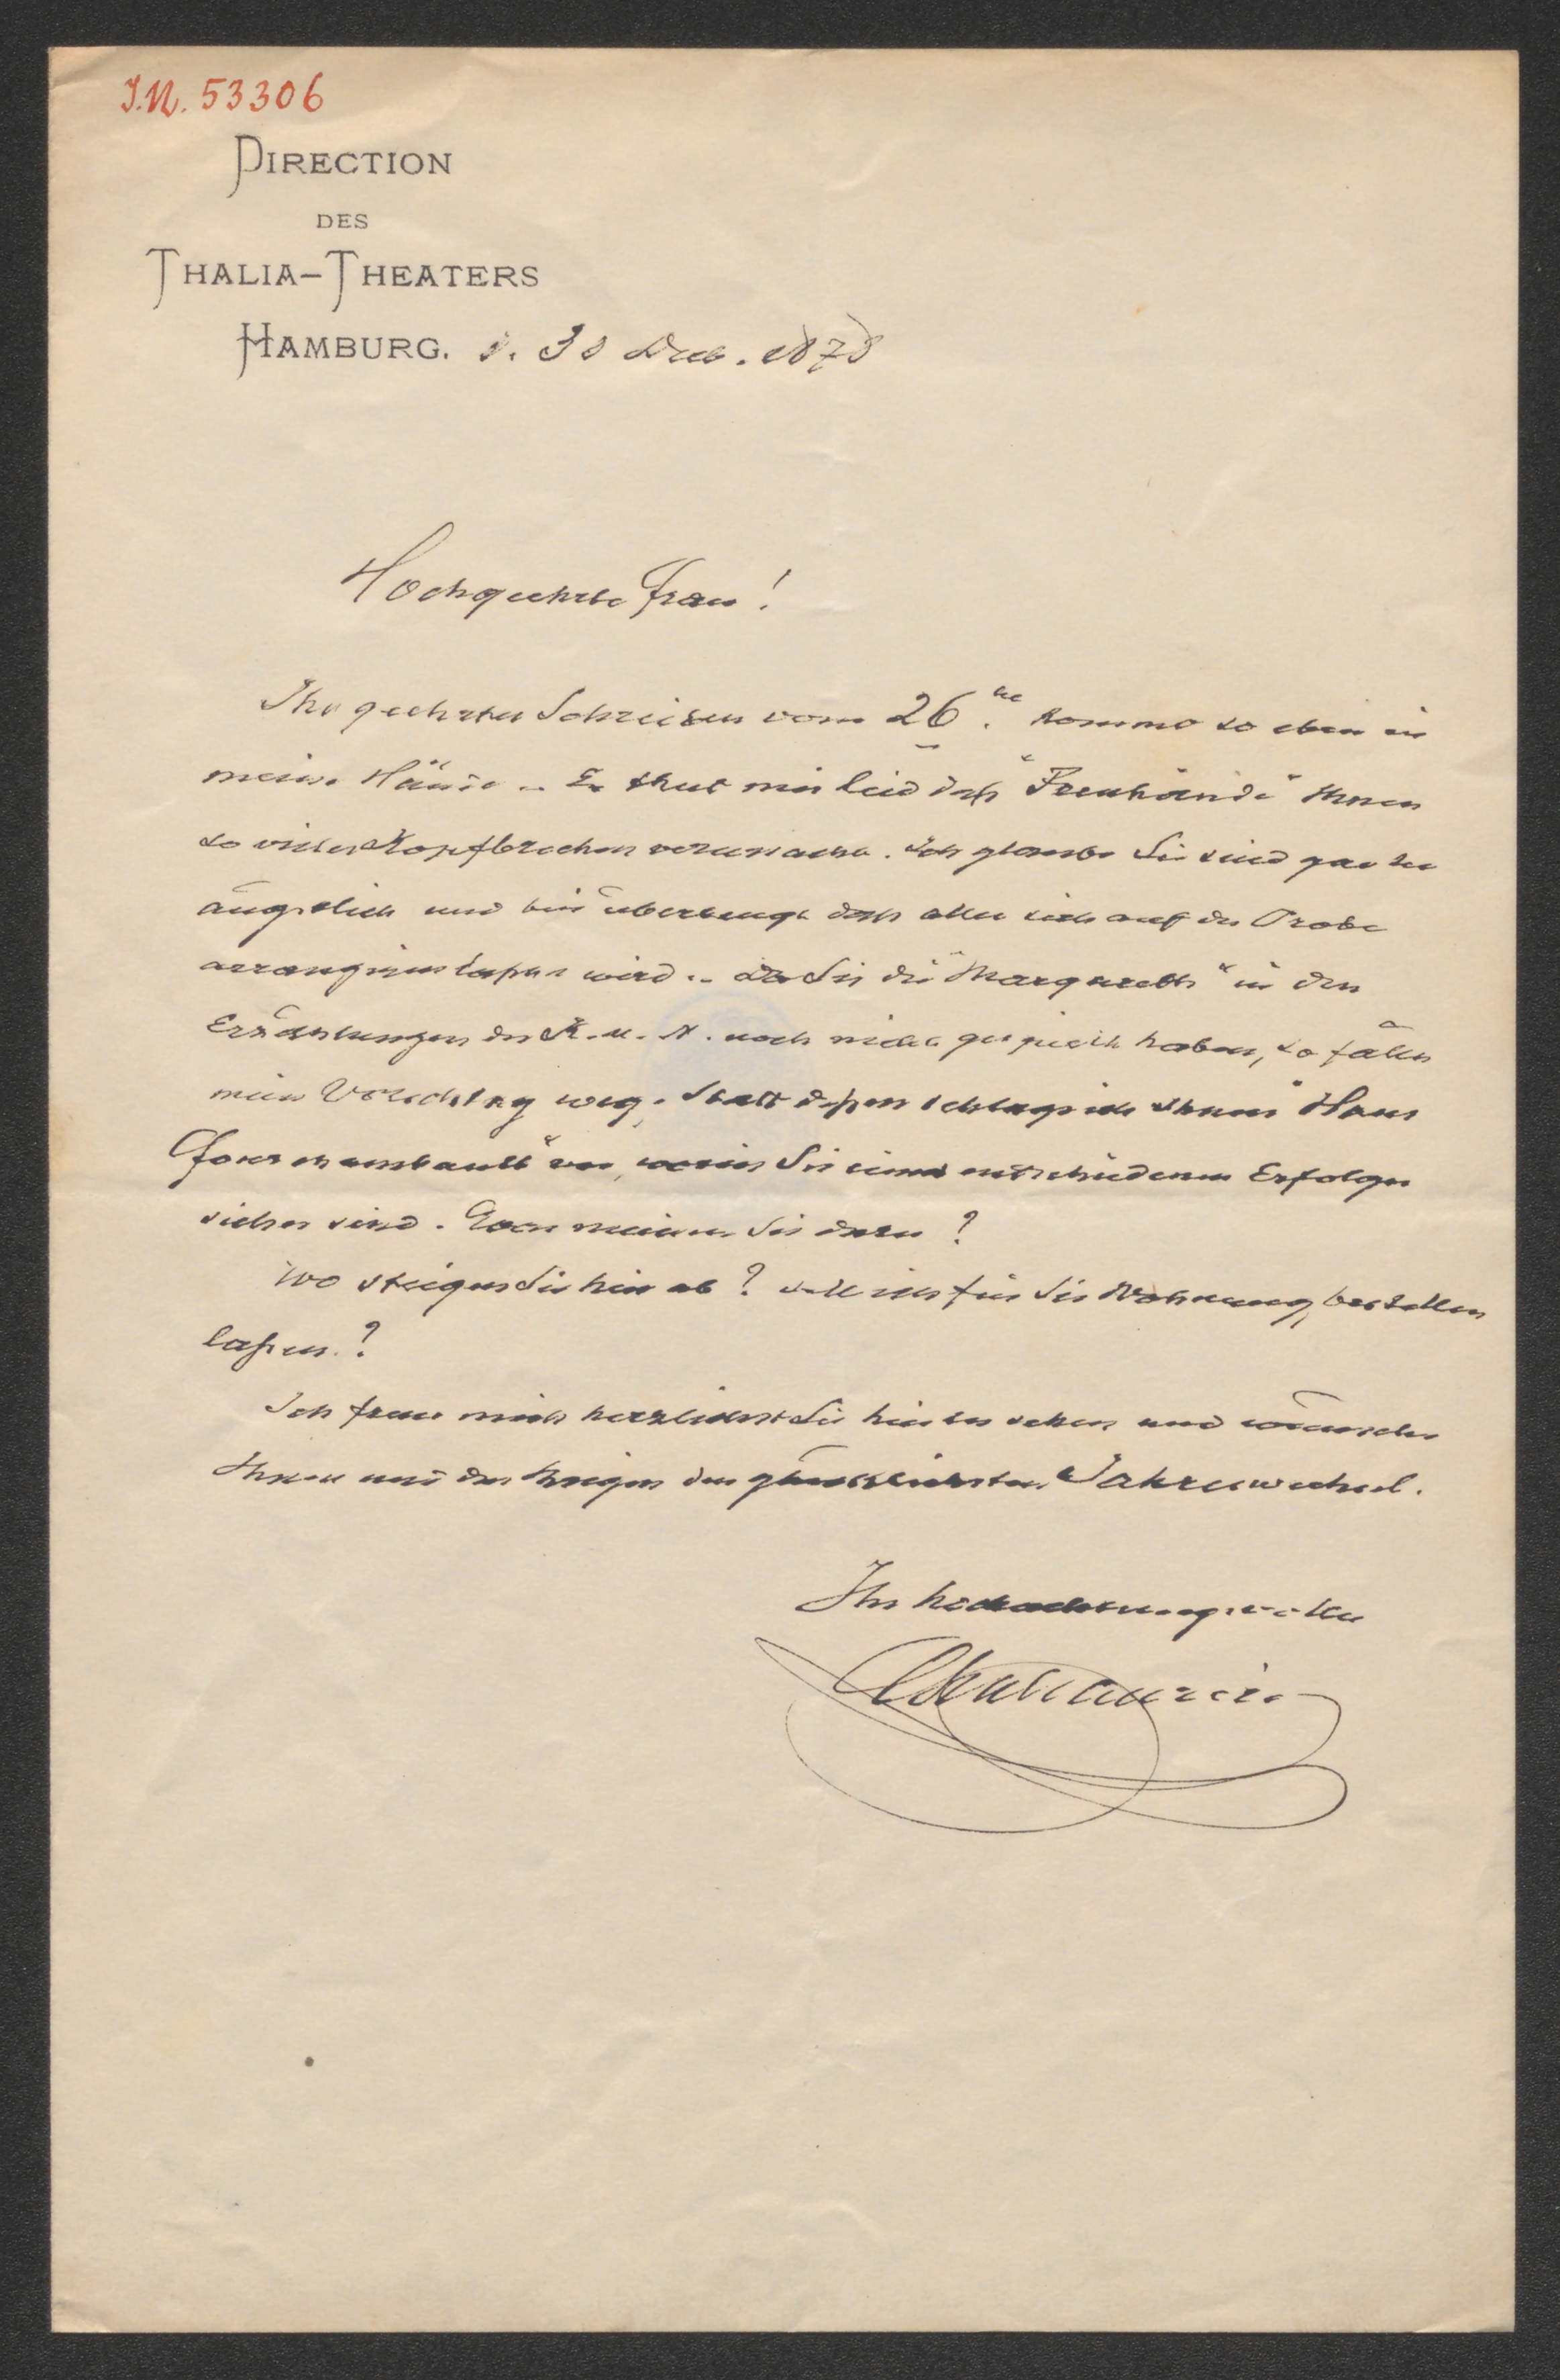 J.N. 53306
DIRECTION
DES
THALIA-THEATERS
HAMBURG. d. 30 Dec. 1878
Hochgeehrte Frau!
Ihr geehrtes Schreiben vom 26. kommt so eben in
meine Hände. - Es thut mir leid daß "Feenhände" Ihnen
so vieles Kopfbrechen verursacht. Ich glaube Sie sind gar zu
ängstlich und bin überzeugt daß alles sich auf der Probe
arrangiren laßen wird. - Da Sie die "Margarethe" in den
Erzählungen der K. v. N. noch nicht gespielt haben, so fällt
mein Vorschlag weg. Statt deßen schlage ich Ihnen "Haus
Fourchambault" vor, worin Sie eines entschiedenen Erfolges
sicher sind. Was meinen Sie dazu?
Wo steigen Sie hier ab? soll ich für Sie Wohnung bestellen
laßen?
Ich freue mich herzlichst Sie hier zu sehen und wünsche
Ihnen und den Ihrigen den glücklichsten Jahreswechsel.
Ihr hochachtungsvoller
Ch Maurice